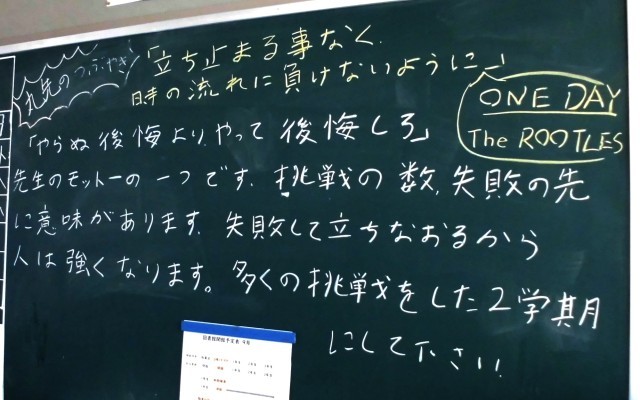 先のつぶやき
「立ち止まる事なく、
時の流れに負けないように」
ONE DAY
The ROOTLES
「やらぬ後悔より、やって後悔しろ」
先生のモットーの一つです。挑戦の数、失敗の先
に意味があります。失敗して立ちなおるから
人は強くなります。多くの挑戦をした2学期
にして下さい!